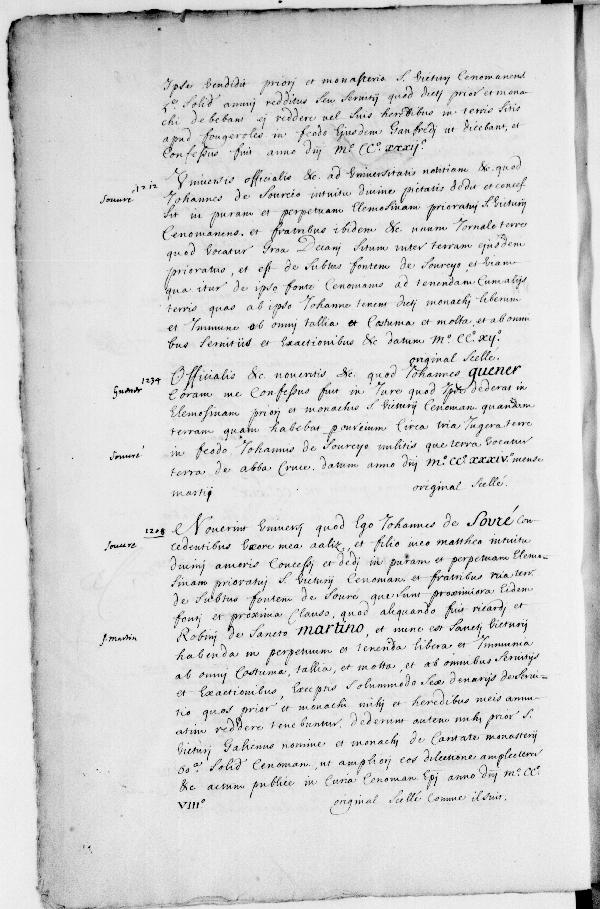 Ipse Vendidit priorj et monasterio S. Victurij Cenomanens
Lta. Solid annuj redditus seu servitij quod dictj prior et mona-
chi debebant ej reddere vel suis heredibus in terris sitis
apud fougeroles in feodo Ejusdem Gaufredj ut dicebant, et
Confessus fuit anno dnj M.° CC.° xxxij.°
1212 Universis officialis &c. ad Universitatis notitiam &c. quod
Souvré Johannes de Sourcio intuitu divine pietatis dedit et concef
sit in puram et perpetuam Elemosinam prioratuj S. Victurij
Cenomanens. et fratribus ibidem &c unum Jornale terre
quod vocatur Groa Decanj situm inter terram ejusdem
prioratus, et est de subtus fontem de Sourcyo, et viam
qua itur de ipso fonte Cenomanis ad tenendam Cum alijs
terris quas ab ipso Johanne tenent dictj monachj liberum
et Immune ab omnj tallia et Costuma et molta, et ab omni
bus servitiis et Exactionibus &c datum M.° CC. xij.°
original Scelle.
1234 Officialis &c noveritis &c. quod Johannes quener
Guener Coram me Confessus fuit in Jure quod Ipse dederat in
Elemosinam priorj et monachis S. Victurij Cenoman quandam
terram quam habebat circa tria Jugera terre
Souvré in feodo Johannis de Sourcyo militis que terra vocatur
terra de abba Cruce. datum anno dnj M.° CC.° xxxiv.° mense
martij original Scellé.
1208 Noverint Universj quod Ego Johannes de Sovré con-
Souvré cedentibus Uxore mea aaliz, et filio meo mattheo intuitu
divinj amoris Concessj et dedj in puram et perpetuam Elemo-
sinam prioratuj S. Victurij Cenoman. et fratribus terr.
de subtus fontem de Sovré, que sunt proximiora Eidem
fontj et proxima Clauso, quod aliquando fuit ricardj et
J. martin Robinj de Sancto martino, et nunc est Sanctj Victurij
habenda in perpetuum et tenenda libera et Immunia
ab omnj Costuma, tallia, et molta, et ab omnibus servitijs
et Exactionibus, Exceptis solummodo sex denarijs de servi-
tio quos prior et monachi mihj et heredibus meis annu-
atim reddere tenebuntur. dederunt autem mihj prior S.
Victurij Galienus nomine et monachj de Caritate monasterij
60.ta Solid Cenoman. ut amplioj eos dilectione amplecterer
&c actum publice in Curia Cenoman Epj anno dnj M.° CC.°
VIII.° original Scellé Comme il suit.